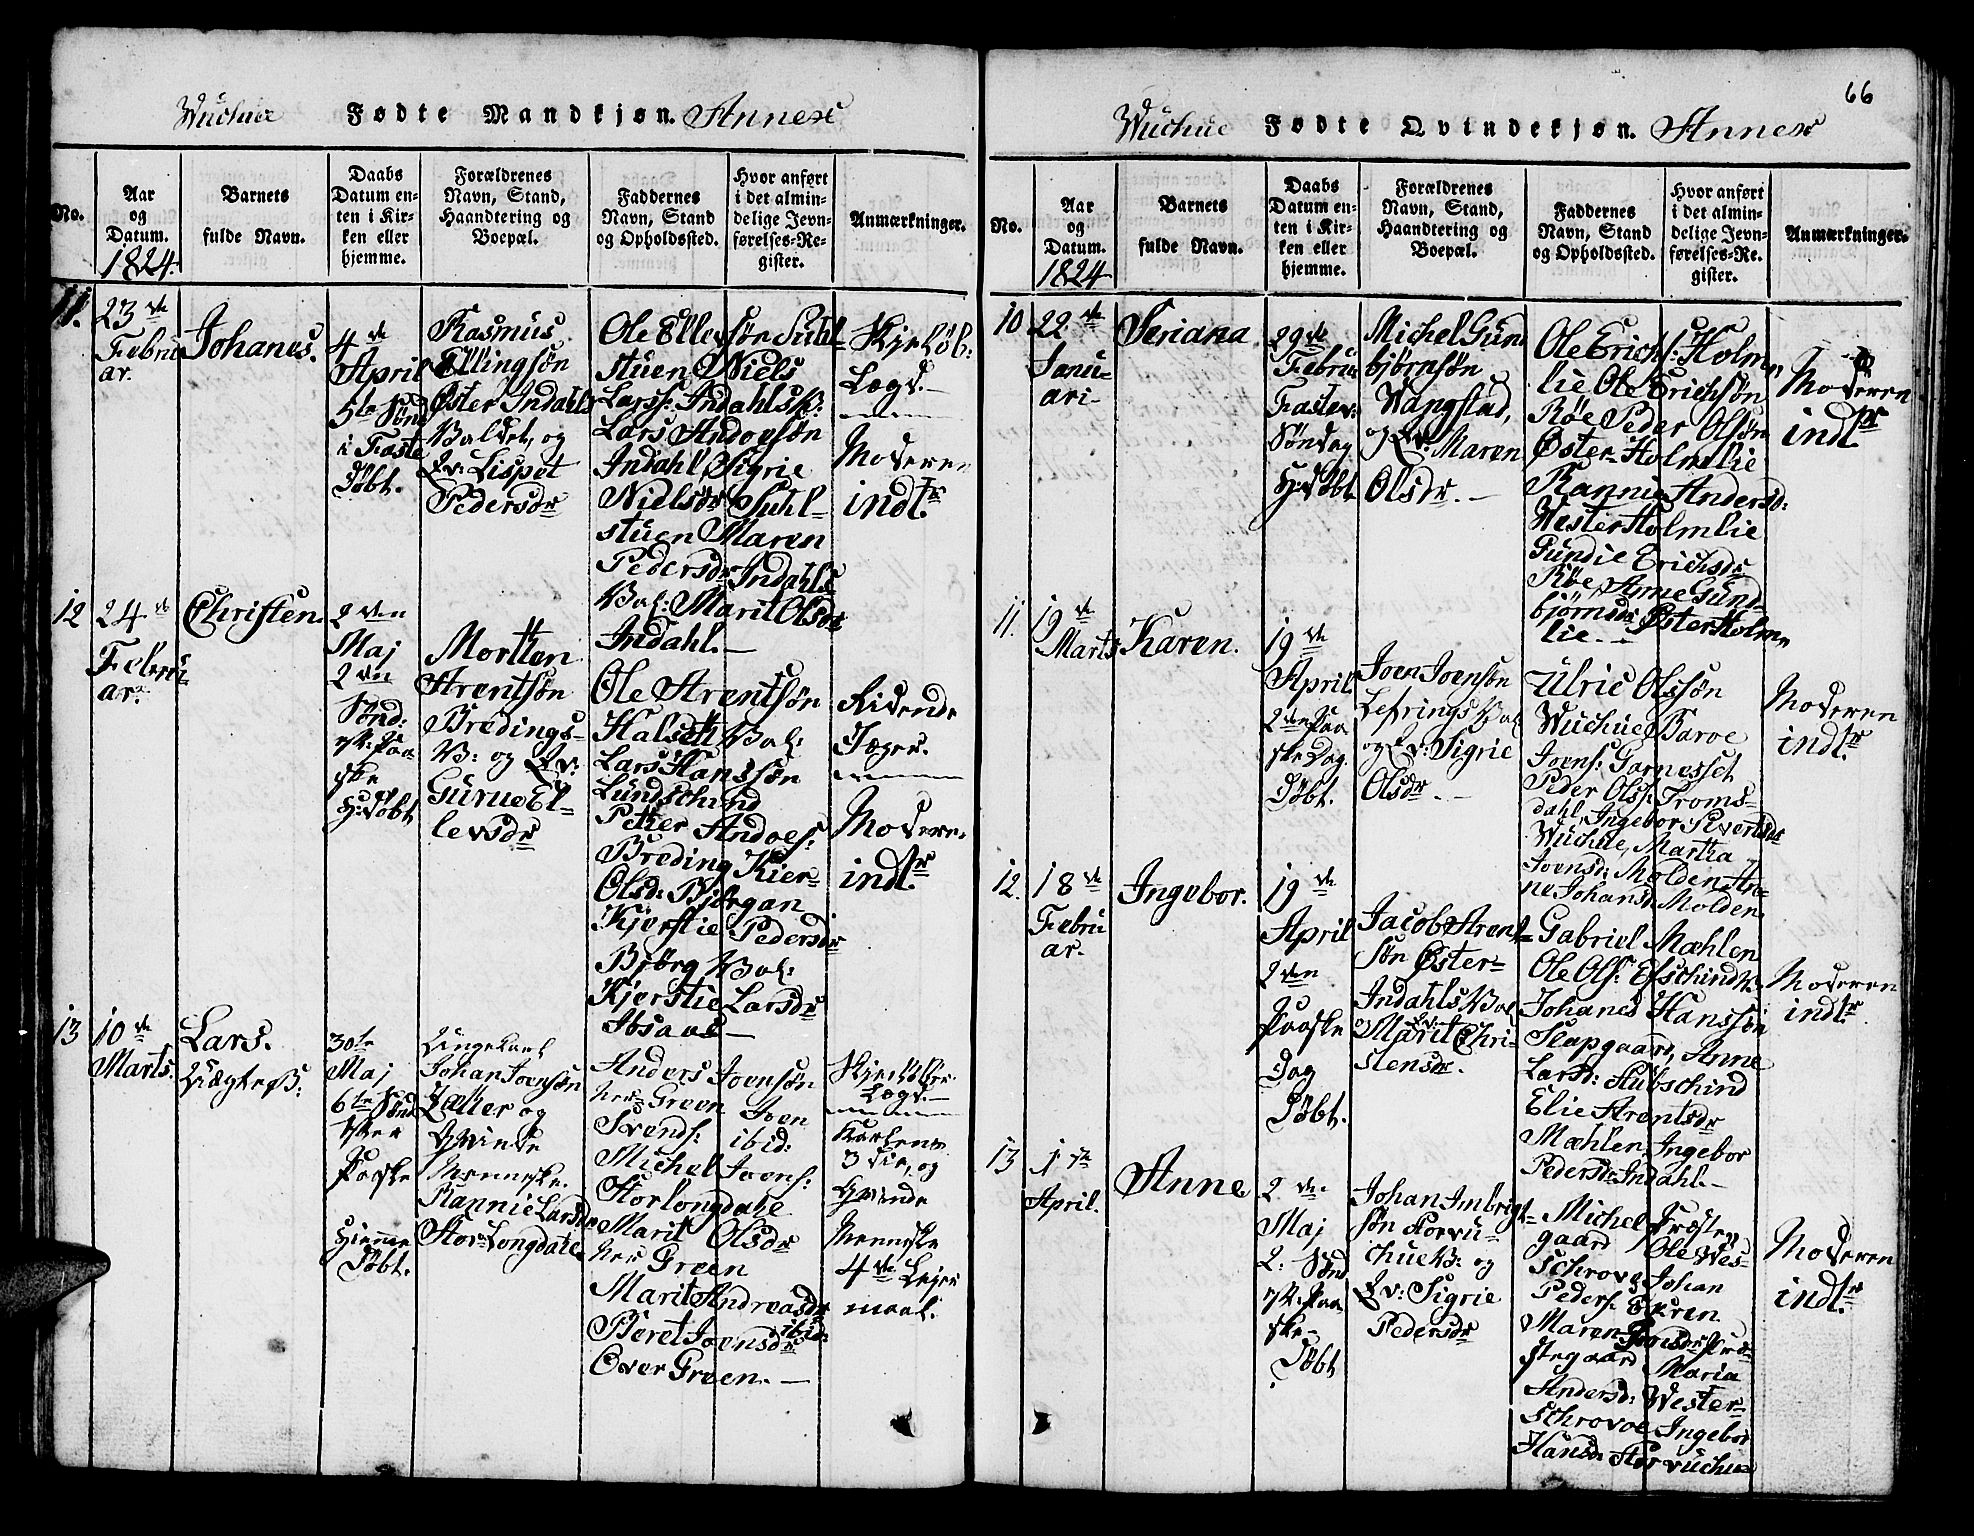 Wuchue Fødte Mandkjøn. Annex
No.
Aar
og
Datum.
1824.
Barnets
fulde Navn.
Daabs
Datum en-
ten i Kir-
ken eller
hjemme.
Forældrenes
Navn, Stand,
Haandtering og
Boepæl.
Faddernes
Navn, Stand
og Opholdssted.
Hvor anført
i det almin-
delige Jevn-
førelses-Re-
gister.
Anmærkninger.
11.
23de
Febru
ar.
Johanes.
4de
April
5te Sønd
i Faste
Døbt.
Rasmus
Ellingsøn
Øster Indahls
Valdet, og
Qv: Lispet
Pedersdr
Ole Ellevsøn Suhl-
stuen Niels
Larss: Indahlsv:
Lars Andoesøn
Indahl, Sigrie
Nielsdr Suhl-
stuen Maren
Pedersdr Indahls
Val: Marit Olsdr
Indahl.
Skjeløb:
Lægd.
Moderen
indt.
12
24de
Febru
ar.
Christen.
2den
Maj
2den
Sønd:
Paa-
ske
Døbt
Mortten
Arentsøn
Bredings-
V: og Qv:
Gurue El-
levsdr
Ole Arentsøn
Halsett Val:
Lars Hanssøn
Lundschind
Petter Andoes:
Breding Kier-
Olsd: Bjørgan
Kjerstie Pedersdr
Bjørg Val:
Kjerstie Larsdr
Ibsaas
Ridende
Jæger.
Moderen
indt.
13
10de
Marts.
Lars.
Uægte
30te
Maj
6te Sønd
Paaske
Hiemme
Døbt.
Ungekarl
Johan Joensøn
og
Qvinde
Menneske.
Rannie Larsdr
Stor Longdale
Anders Joensøn
Green Joen
Svends: ibid:
Michel Joens:
Storlongdale
Marit Olsdr
Green
Marit Andreasdr
ibid:
Beret Joensdr
Over Green.
Lægd.
Karlens
3die, og
Qvinde
Menneske
4de Lejer
maal.
66
Wuchue Fødte Qvindekjøn. Annex
No.
Aar
og
Datum.
1824
Barnets
fulde Navn.
Daabs
Datum en-
ten i Kir-
ken eller
hjemme.
Forældrenes
Navn, Stand,
Haandtering og
Boepæl.
Faddernes
Navn, Stand
og Opholdssted.
Hvor anført
i det almin-
delige Jevn-
førelses-Re-
gister.
Anmærkninger.
10
22de
Janu-
ari
Seriana
29de
Febru
Fastel:
Søndag
Døbt
Michel Gund
bjørnsøn
Wangstad,
og Qv: Maren
Olsdr.
Ole Erichs: Holm
lie Ole Erichsøn
Røe Peder Olsøn
Øster-Holmlie
Rannie Andersd:
Wester Holmlie
Gundie Erichsdr
Røe, Anne Gund-
bjørnsdr Øster Holm
lie.
Moderen
indt.
11.
19de
Marts
Karen.
19de
April
2den Paa
ske Dag
Døbt.
Joen Joensøn
Lefrings Val
og Qv: Sigrie
Olsdr.
Ulric Olssøn
Wuchue, Baroe
Joens: Garnesset
Peder Olss: Troms-
dahl, Ingebor Sivertsdr
Wuchue, Martha
Joensdr: Molden An-
ne Johansd: Molden
Moderen
indt.
12.
18de
Febru
ar.
Ingebor.
19de
April
2den
Paaske
Dag
Døbt.
Jacob Arent-
søn Øster-
Indahls Val
Marit Chri-
stensdr.
Gabriel Mæhlen
Ole Ols:
Johanes Hanssøn
Slapgaard, Anne
Larsd: Stubschind
Elie Arentsdr
Mæhlen, Ingebor
Pedersdr: Indahl.
Moderen
indt.
13
1ste
April.
Anne
2den
Maj
2. Sønd
Paa-
ske
Døbt
Johan Imbrigt-
søn Storvu-
chue V: og
Qv: Sigrie
Pedersdr
Michel Præste-
gaard Ole Wes-
Schrove Johan
Peders: Ekren
Maren Præ-
stegaard Maria
Andersd: Wester-
Schrovoe Ingebor
Hansd: Storvuchue
Moderen
indt.